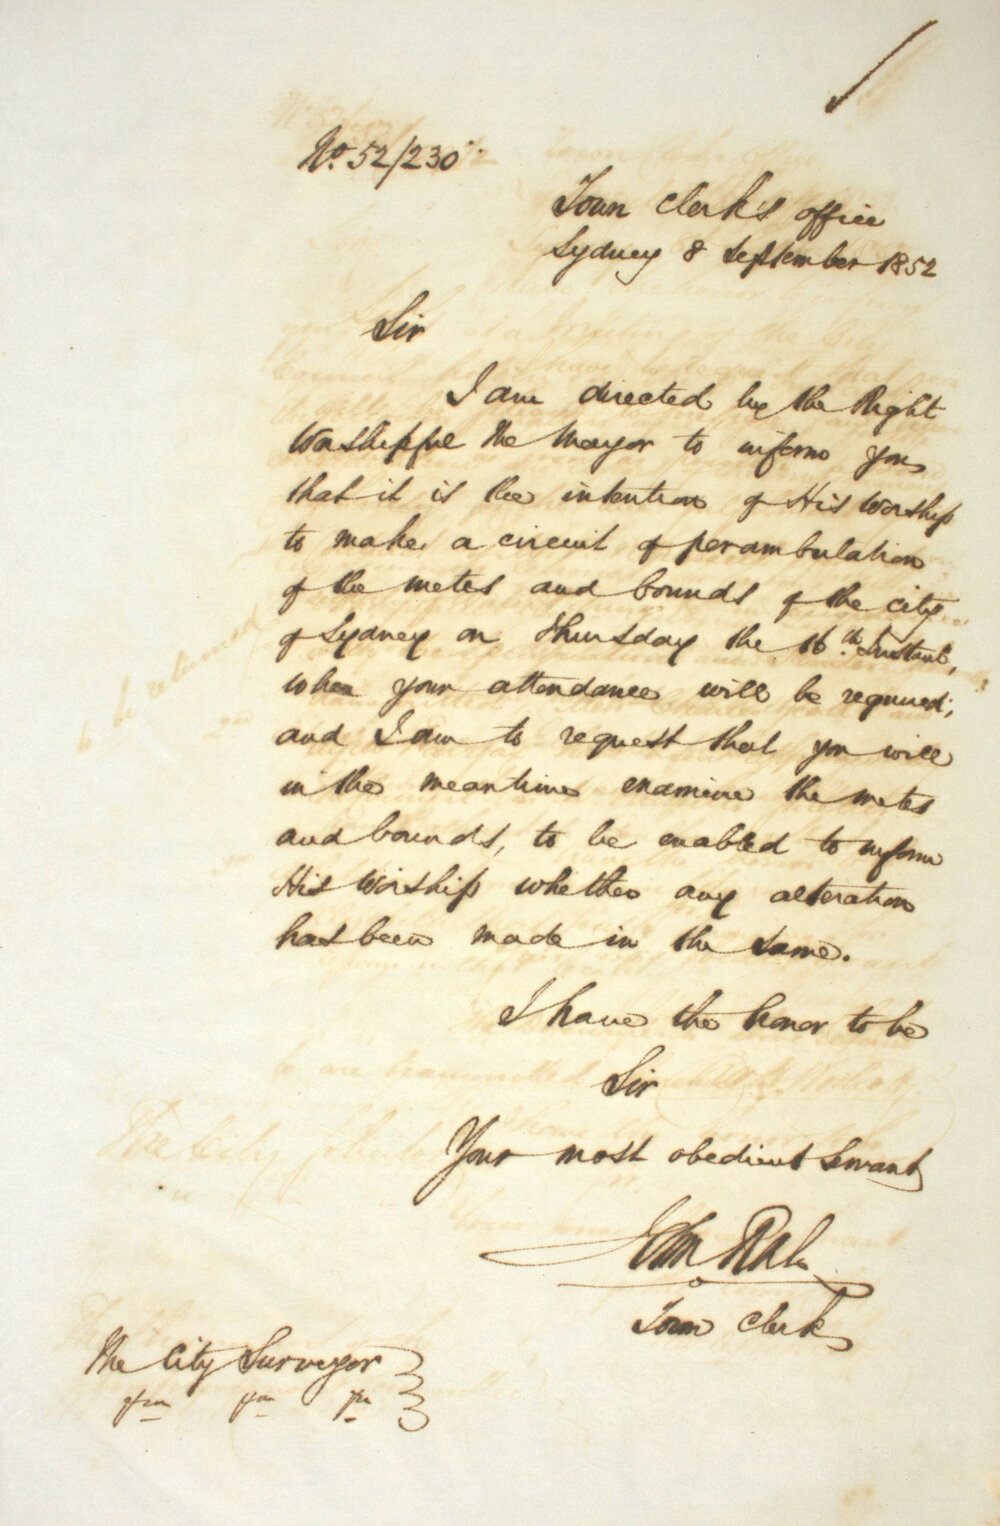 No. 52/230
Town Clerk's office
Sydney 8 September 1852
Sir
I am directed by the Right
Worshipful the Mayor to inform you
that it is the intention of His Worship
to make a circuit of perambulation
of the metes and bounds of the city
of Sydney on Thursday the 16th. Instant,
when your attendance will be required;
and I am to request that you will
in the meantime examine the metes
and bounds, to be enabled to inform
His Worship whether any alteration
has been made in the same.
I have the honor to be
Sir
Your most obedient Servant
John Rae
Town Clerk
The City Surveyor
to be returned